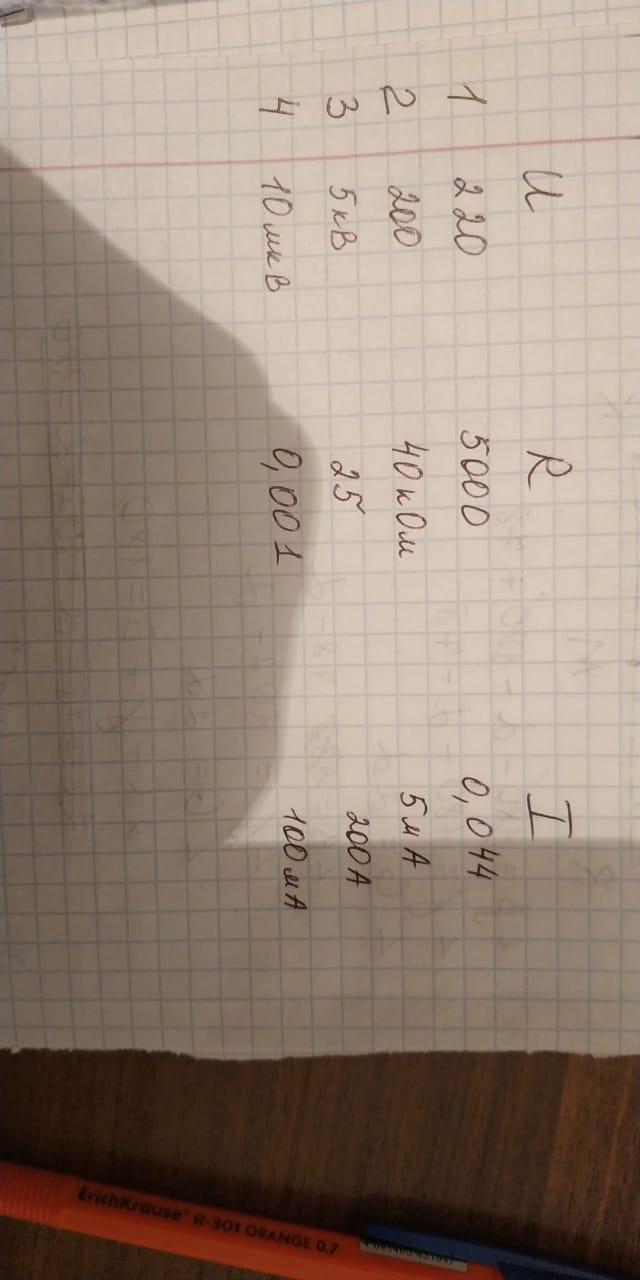 U R I
1 220 5000 0,044
2 200 40 кОм 5 мА
3 5 кВ 25 200 А
4 10 мкВ 0,001 100 мА
ErichKrause® R-301 ORANGE 0.7